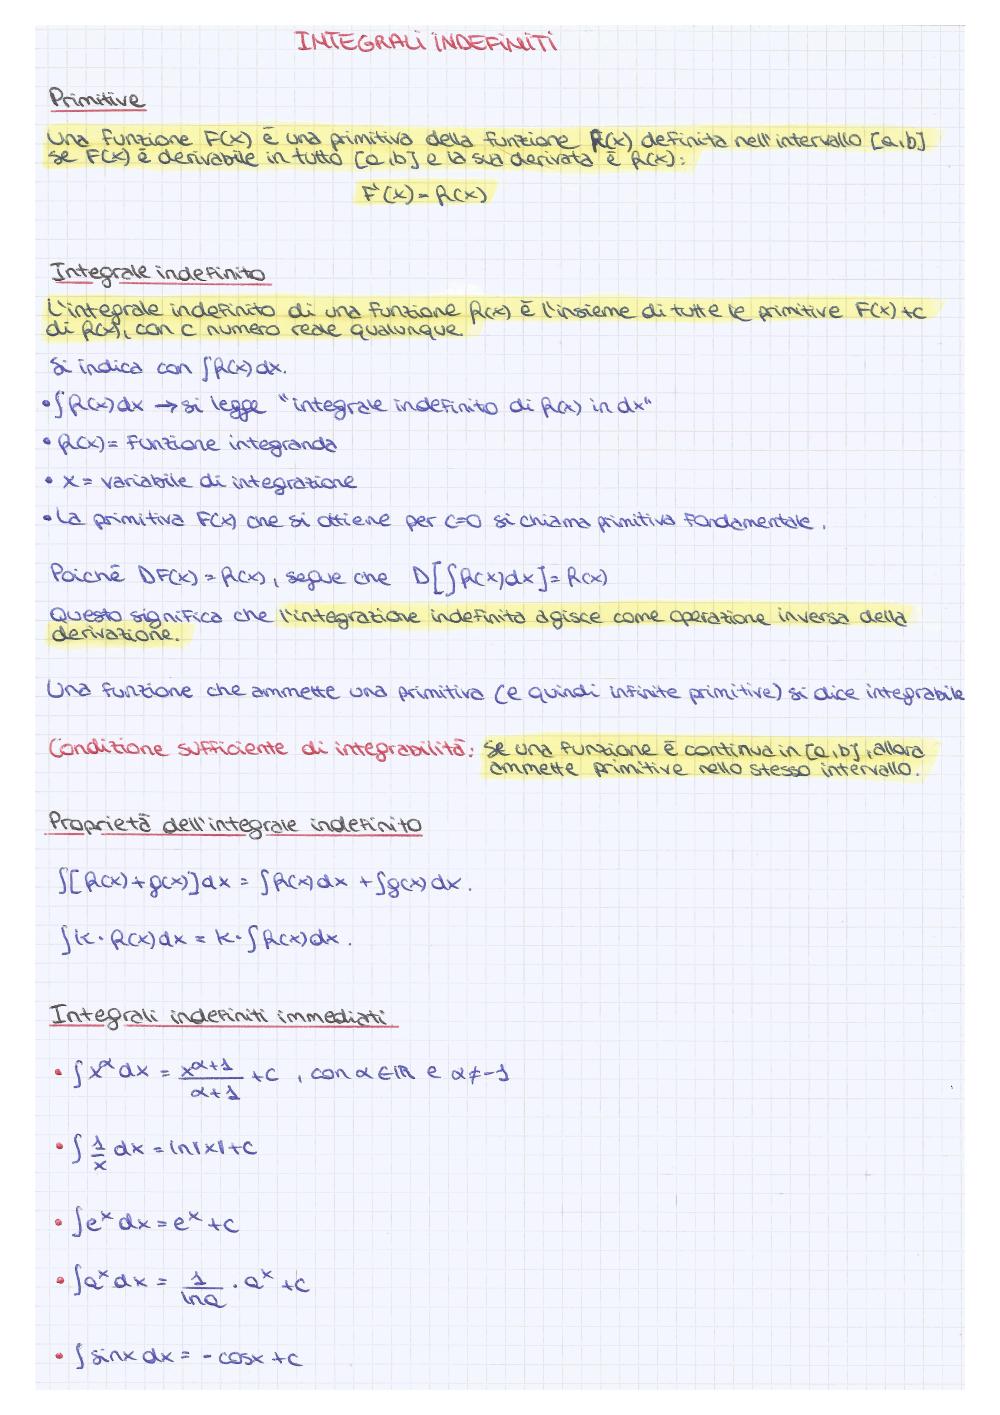 INTEGRALI INDEFINITI
Primitive
Una funzione F(x) è una primitiva della funzione f(x) definita nell'intervallo [a,b]
se F(x) è derivabile in tutto [a,b] e la sua derivata è f(x):
F'(x)=f(x)
Integrale indefinito
L'integrale indefinito di una funzione f(x) è l'insieme di tutte le primitive F(x)+c
di f(x), con c numero reale qualunque.
Si indica con ∫f(x)dx.
•∫f(x)dx → si legge "integrale indefinito di f(x) in dx"
• f(x)= funzione integranda
• x = variabile di integrazione
• La primitiva F(x) che si ottiene per c=0 si chiama primitiva fondamentale.
Poiché DF(x) = f(x), segue che D[∫f(x)dx]=f(x)
Questo significa che l'integrazione indefinita agisce come operazione inversa della
derivazione.
Una funzione che ammette una primitiva (e quindi infinite primitive) si dice integrabile
Condizione sufficiente di integrabilità: se una funzione è continua in [a,b], allora
ammette primitive nello stesso intervallo.
Proprietà dell'integrale indefinito
∫[f(x)+g(x)]dx = ∫f(x)dx +∫g(x)dx.
∫k·f(x)dx = k·∫f(x)dx.
Integrali indefiniti immediati
• ∫x^α dx = x^(α+1)/(α+1) +c , con α∈ℝ e α≠-1
• ∫ 1/x dx = ln|x|+c
• ∫e^x dx = e^x +c
• ∫a^x dx = 1/lna · a^x +c
• ∫sinx dx = - cosx +c